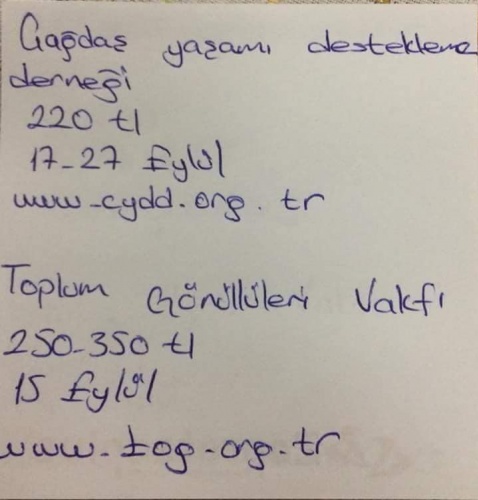 Çağdaş yaşamı destekleme
derneği
220 tl
17-27 Eylül
www-cydd.org.tr
Toplum Gönüllüleri Vakfı
250-350 tl
15 Eylül
www-tog-org-tr